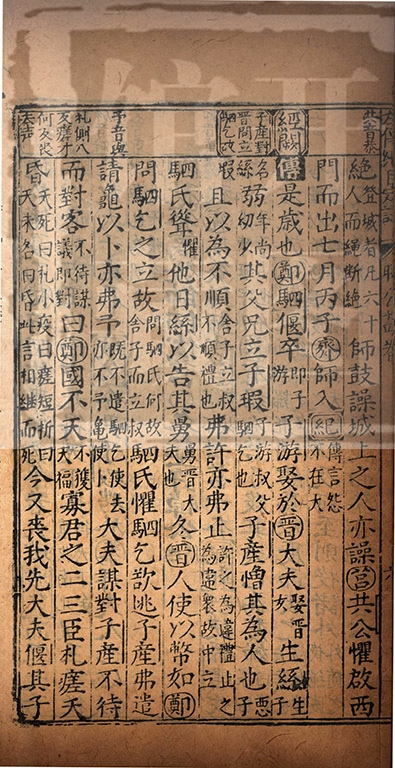 絶登城者凡六十人而繩斷絶師鼓譟城上之人亦譟莒共公懼啟西
門而出七月丙子齊師入紀傳言怨不在大
經闕
傳是歲也鄭駟偃卒即子游子游娶於晉大夫娶晉女生絲生子
子產對晉問立駟乞改
名絲弱年尚幼少其父兄立子瑕子游叔父駟乞也子產憎其為人也惡子
瑕且以為不順舍子立叔不順禮也弗許亦弗止許之為違禮止之為違衆故中立
駟氏聳懼也他日絲以告其舅舅晉大夫也冬晉人使以幣如鄭
問駟乞之立故問駟氏何故舍子而立叔駟氏懼駟乞欲逃子產弗遣
予音與
請龜以卜亦弗予既不遣駟乞使去亦不予龜使卜大夫謀對子產不待
札側八反瘥才何反夭去声
而對客不待謀議即對曰鄭國不天不獲天福寡君之二三臣札瘥夭
昏夭死曰札小疫曰瘥短折曰夭未名曰昏此言相継而死今又喪我先大夫偃其子